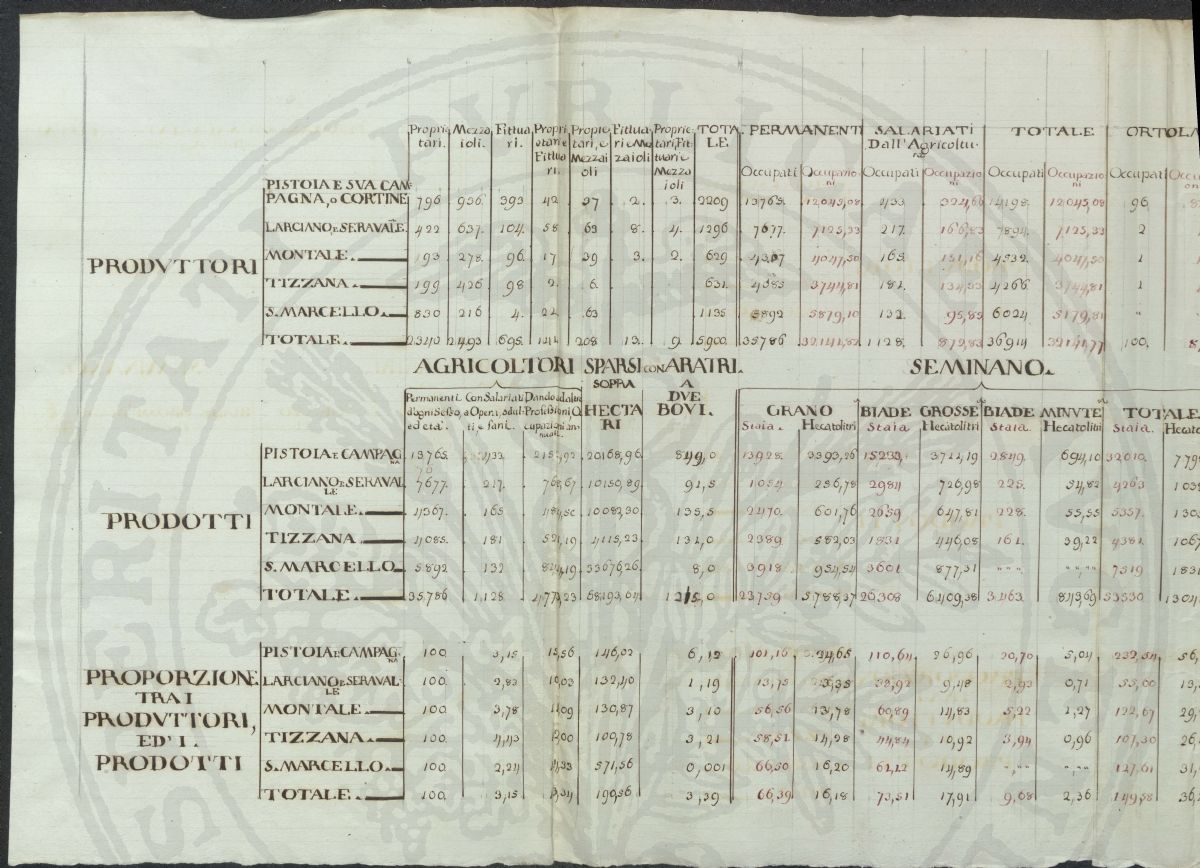 Proprietari. Mezzaioli. Fittuari. Proprietari e Fittuari. Proprietari, e Mezzaioli Fittuari e Mezzaioli. Proprietari, Fittuari e Mezzaioli TOTALE PERMANENTI SALARIATI Dall'Agricoltu. TOTALE ORTOLA
Occupati Occupazioni Occupati Occupazioni Occupati Occupazioni Occupati
PRODVTTORI
PISTOIA E SVA CAMPAGNA, o CORTINE 796 936. 393 42 37 2. 3. 2209 13765. 12045,08 433 14198. 12045,08 96.
LARCIANO E SERAVALE. 422 637. 104. 58 63 8. 4. 1296 7677. 7125,33 217. 166,83 7894. 7125,33 2
MONTALE. 193 278. 96. 17 39 3. 2. 629 4367 4047,50 165. 131,16 4532. 4047,50 1
TIZZANA. 199 426 98 2. 6. 631. 4085 3744,81 181. 134,53 4266 3744,81 1
S. MARCELLO. 830 216 4. 22 63 1135 5892 5179,10 132. 95,83 6024 5179,81 "
TOTALE. 2340 2493 695. 141 208 13. 9. 5900. 35786 32141,82 1128. 36914 32141,77 100.
AGRICOLTORI SPARSI CON ARATRI. SEMINANO.
Permanenti d'ogni Sesso, ed età. Con Salariati a Opera, adulti e sani. SOPRA HECTARI A DVE BOVI. GRANO BIADE GROSSE BIADE MINUTE TOTALE
Staia. Hecatolitri Staia Hecatolitri Staia. Hecatolitri Staia.
PRODOTTI
PISTOIA E CAMPAGNA 13765. 433. 20168,96. 849,0 13928. 3393,26 15233. 3714,19 2849. 694,10 32010. 779
LARCIANO E SERAVALLE 7677. 217. 768,67 10150,89 91,5 1054 256,78 2984 726,98 225. 54,82 4263 103
MONTALE. 4367. 165 10082,30 135,5 2470. 601,76 2659 647,81 228. 55,55 5357. 130
TIZZANA 4085. 181 521,19 4115,23. 131,0 2389. 582,03 1831 446,08 161. 39,22 4381. 1067
S. MARCELLO 5892 132 33676,26. 8,0 3918 954,54 3601 877,31 "" "" 7519 1831
TOTALE. 35,786 1,128. 68193,64 1215,0 23759 5788,37 26308 6409,38 3463. 843,69 53530. 1304
PROPORZIONE TRA I PRODVTTORI, ED' I. PRODOTTI
PISTOIA E CAMPAGNA 100. 3,15 15,56 146,02 6,12 101,16 24,65 110,64 26,96 20,70 5,04 232,54 56,
LARCIANO E SERAVALLE 100. 2,83 10,03 132,40 1,19 13,75 32,92 9,48 2,93 0,71 55,00 13,
MONTALE. 100. 3,78 130,87 3,10 56,56 13,78 60,89 14,83 5,22 1,27 122,67 29,
TIZZANA. 100. 4,43 100,78 3,21 58,51 14,28 44,84 10,92 3,94 0,96 107,30 26
S. MARCELLO. 100. 2,24 571,56 0,001 66,50 16,20 61,12 14,89 "" "" 127,61 31,
TOTALE. 100. 3,15 13,34 190,56 3,39 66,39 16,18 73,51 17,91 9,68 2,36 149,58 36,